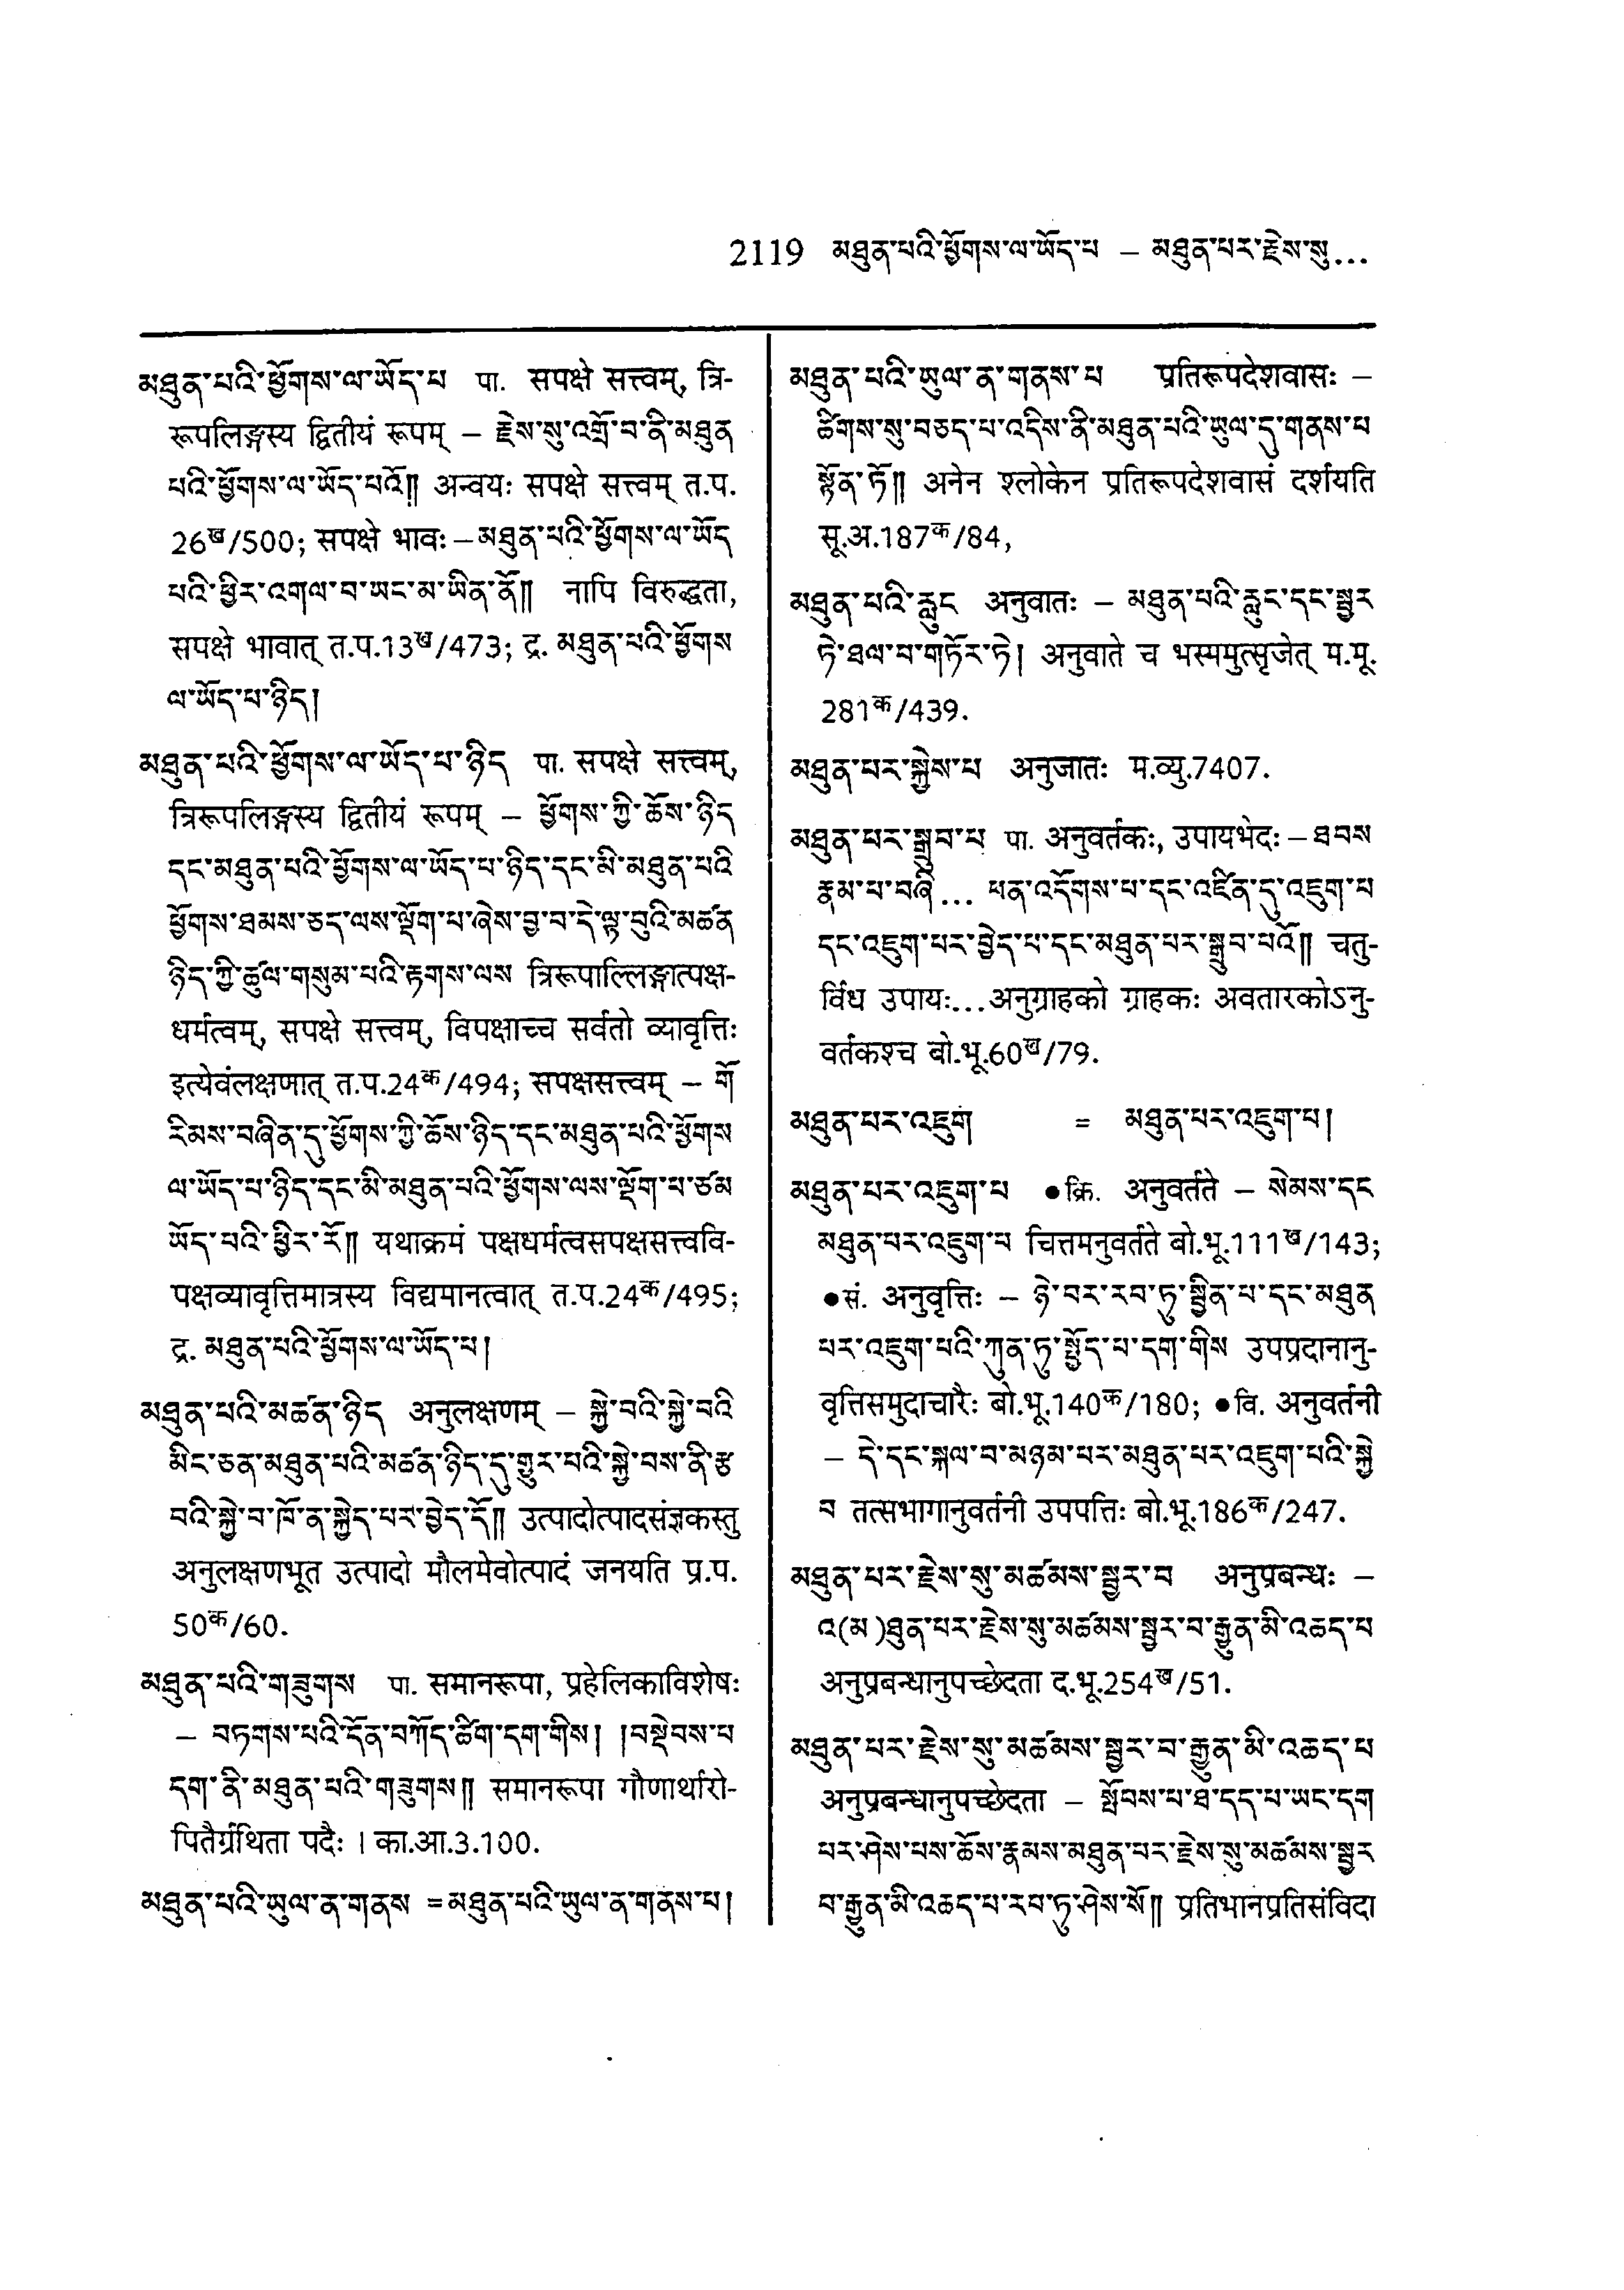 2119 མཐུན་པའི་ཕྱོགས་ལ་ཡོད་པ – མཐུན་པར་རྗེས་སུ...
མཐུན་པའི་ཕྱོགས་ལ་ཡོད་པ पा. सपक्षे सत्त्वम्, त्रि-
रूपलिङ्गस्य द्वितीयं रूपम् – རྗེས་སུ་འགྲོ་བ་ནི་མཐུན
པའི་ཕྱོགས་ལ་ཡོད་པའོ།། अन्वयः सपक्षे सत्त्वम् त.प.
26ख/500; सपक्षे भावः – མཐུན་པའི་ཕྱོགས་ལ་ཡོད
པའི་ཕྱིར་འགལ་བ་ཡང་མ་ཡིན་ནོ།། नापि विरुद्धता,
सपक्षे भावात् त.प.13ख/473; द्र. མཐུན་པའི་ཕྱོགས
ལ་ཡོད་པ་ཉིད།
མཐུན་པའི་ཕྱོགས་ལ་ཡོད་པ་ཉིད पा. सपक्षे सत्त्वम्,
त्रिरूपलिङ्गस्य द्वितीयं रूपम् – ཕྱོགས་ཀྱི་ཆོས་ཉིད
དང་མཐུན་པའི་ཕྱོགས་ལ་ཡོད་པ་ཉིད་དང་མི་མཐུན་པའི
ཕྱོགས་ཐམས་ཅད་ལས་ལྡོག་པ་ཞེས་བྱ་བ་དེ་ལྟ་བུའི་མཚན
ཉིད་ཀྱི་ཚུལ་གསུམ་པའི་རྟགས་ལས त्रिरूपाल्लिङ्गात्पक्ष-
धर्मत्वम्, सपक्षे सत्त्वम्, विपक्षाच्च सर्वतो व्यावृत्तिः
इत्येवंलक्षणात् त.प.24क/494; सपक्षसत्त्वम् – གོ
རིམས་བཞིན་དུ་ཕྱོགས་ཀྱི་ཆོས་ཉིད་དང་མཐུན་པའི་ཕྱོགས
ལ་ཡོད་པ་ཉིད་དང་མི་མཐུན་པའི་ཕྱོགས་ལས་ལྡོག་པ་ཙམ
ཡོད་པའི་ཕྱིར་རོ།། यथाक्रमं पक्षधर्मत्वसपक्षसत्त्ववि-
पक्षव्यावृत्तिमात्रस्य विद्यमानत्वात् त.प.24क/495;
द्र. མཐུན་པའི་ཕྱོགས་ལ་ཡོད་པ།
མཐུན་པའི་མཚན་ཉིད अनुलक्षणम् – སྐྱེ་བའི་སྐྱེ་བའི
མིང་ཅན་མཐུན་པའི་མཚན་ཉིད་དུ་གྱུར་བའི་སྐྱེ་བས་ནི་རྩ
བའི་སྐྱེ་བ་ཁོ་ན་སྐྱེད་པར་བྱེད་དོ།། उत्पादोत्पादसंज्ञकस्तु
अनुलक्षणभूत उत्पादो मौलमेवोत्पादं जनयति प्र.प.
50क/60.
མཐུན་པའི་གཟུགས पा. समानरूपा, प्रहेलिकाविशेषः
– བཏགས་པའི་དོན་བཀོད་ཚིག་དག་གིས། །བསྡེབས་པ
དག་ནི་མཐུན་པའི་གཟུགས།། समानरूपा गौणार्थारो-
पितैर्ग्रथिता पदैः । का.आ.3.100.
མཐུན་པའི་ཡུལ་ན་གནས = མཐུན་པའི་ཡུལ་ན་གནས་པ།
མཐུན་པའི་ཡུལ་ན་གནས་པ प्रतिरूपदेशवासः –
ཚིགས་སུ་བཅད་པ་འདིས་ནི་མཐུན་པའི་ཡུལ་དུ་གནས་པ
སྟོན་ཏོ།། अनेन श्लोकेन प्रतिरूपदेशवासं दर्शयति
सू.अ.187क/84,
མཐུན་པའི་རླུང अनुवातः – མཐུན་པའི་རླུང་དང་སྦྱར
ཏེ་ཐལ་བ་གཏོར་ཏེ། अनुवाते च भस्ममुत्सृजेत् म.मू.
281क/439.
མཐུན་པར་སྐྱེས་པ अनुजातः म.व्यु.7407.
མཐུན་པར་སྒྲུབ་པ पा. अनुवर्तकः, उपायभेदः – ཐབས
རྣམ་པ་བཞི... ཕན་འདོགས་པ་དང་འཛིན་དུ་འཇུག་པ
དང་འཇུག་པར་བྱེད་པ་དང་མཐུན་པར་སྒྲུབ་པའོ།། चतु-
र्विध उपायः...अनुग्राहको ग्राहकः अवतारकोऽनु-
वर्तकश्च बो.भू.60ख/79.
མཐུན་པར་འཇུག = མཐུན་པར་འཇུག་པ།
མཐུན་པར་འཇུག་པ ●क्रि. अनुवर्तते – སེམས་དང
མཐུན་པར་འཇུག་པ चित्तमनुवर्तते बो.भू.111ख/143;
●सं. अनुवृत्तिः – ཉེ་བར་རབ་ཏུ་སྦྱིན་པ་དང་མཐུན
པར་འཇུག་པའི་ཀུན་ཏུ་སྤྱོད་པ་དག་གིས उपप्रदानानु-
वृत्तिसमुदाचारैः बो.भू.140क/180; ●वि. अनुवर्तनी
– དེ་དང་སྐལ་བ་མཉམ་པར་མཐུན་པར་འཇུག་པའི་སྐྱེ
བ तत्सभागानुवर्तनी उपपत्तिः बो.भू.186क/247.
མཐུན་པར་རྗེས་སུ་མཚམས་སྦྱར་བ अनुप्रबन्धः –
འ(མ )ཐུན་པར་རྗེས་སུ་མཚམས་སྦྱར་བ་རྒྱུན་མི་འཆད་པ
अनुप्रबन्धानुपच्छेदता द.भू.254ख/51.
མཐུན་པར་རྗེས་སུ་མཚམས་སྦྱར་བ་རྒྱུན་མི་འཆད་པ
अनुप्रबन्धानुपच्छेदता – སྤོབས་པ་ཐ་དད་པ་ཡང་དག
པར་ཤེས་པས་ཆོས་རྣམས་མཐུན་པར་རྗེས་སུ་མཚམས་སྦྱར
བ་རྒྱུན་མི་འཆད་པ་རབ་ཏུ་ཤེས་སོ།། प्रतिभानप्रतिसंविदा